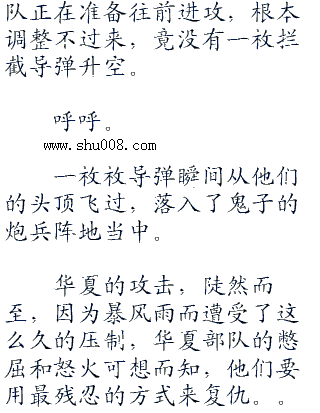 队正在准备往前进攻，根本
调整不过来，竟没有一枚拦
截导弹升空。
呼呼。
www.shu008.com
一枚枚导弹瞬间从他们
的头顶飞过，落入了鬼子的
炮兵阵地当中。
华夏的攻击，陡然而
至，因为暴风雨而遭受了这
么久的压制，华夏部队的憋
屈和怒火可想而知，他们要
用最残忍的方式来复仇。。